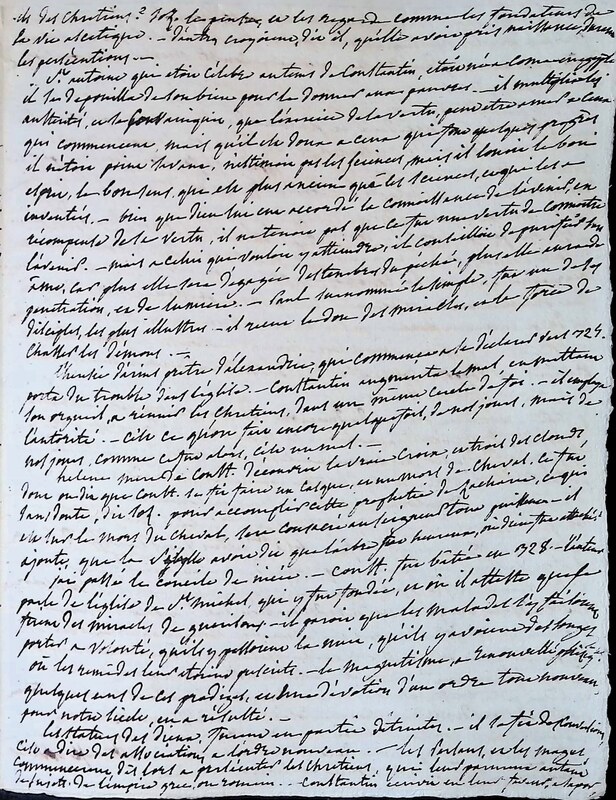 des Chrétiens. Soz. le pense, et les regarde comme les fondateurs de
la vie ascétique. — d'autres croyoient, dit il, qu'elle avoit pris naissance, durant
les persécutions. —
St. antoine qui étoit célèbre au tems de Constantin, étoit né a Coma en egypte
il se depouilla de son bien pour le donner aux pauvres. — il multiplia les
austérités, que l'exercice de la vertu, peut etre amer a ceux
qui commencent, mais qu'il est doux a ceux qui font quelques progrès
il n'étoit point savant, n'estimoit pas les sciences, mais il louoit le bon
esprit, le bon sens, qui est plus ancien que les sciences, et qui les a
inventées. — bien que dieu lui eut accordé la connoissance de l'avenir, en
récompense de sa vertu, il ne tenoit pas que ce fut une vertu de connoitre
l'avenir. — mais a celui qui vouloit y atteindre, il conseilloit de purifier son
ame, car plus elle sera dégagée des ombres du péché, plus elle aura de
pénétration, et de lumiere. — Paul surnommé le simple, fut un de ses
disciples, les plus illustres — il recut le don des miracles, et la force de
chasser les démons. —
l'hérésie d'arius pretre d'alexandrie, qui commenca a se déclarer vers 324.
porta du trouble dans l'église. — Constantin augmenta le mal, en mettant
son orgueil, a réunir les Chrétiens, dans un meme cercle de foi. — il employa
l'autorité. — c'est ce qu'on fait encore quelquefois, de nos jours, mais de
nos jours, comme ce fut alors, c'est un mal. —
helene mere de Const. découvrit la vraie Croix, et trois des clouds,
dont on dit que Const. se fit faire un casque, et un mors de cheval. ce fut
sans doute, dit Soz. pour accomplir cette prophétie de Zacharie, ce qui
est sur le mors du cheval, sera consacré au seigneur tout puissant — il
ajoute, que la Sibylle avoit dit que l'arbre fut heureux, ou dieu fut attaché.
j'ai passé le concile de nicée. — Const. fut batie en 328 — l'auteur
parle de l'église de St. michel, qui y fut fondée, et ou il atteste que se
firent des miracles de guerisons — il paroit que les malades s'y faisoient
porter a volonté, qu'ils y passoient la nuit, qu'ils y avoient des songes
ou les remedes leur étoient prescrits. — le magnétisme, a renouvellé
quelques uns de ces prodiges, et une dévotion d'un ordre tout nouveau,
pour notre siecle, en a résulté. —
les statues des dieux, furent en partie détruites. — il se fit des
c'est a dire des associations, a l'ordre nouveau. — les Persans, et les mages
commencerent dès lors a persécuter les chrétiens, qui leur parurent autant
de sujets de l'empire grec, ou romain. — Constantin écrivit en leur faveur, a Sapor,